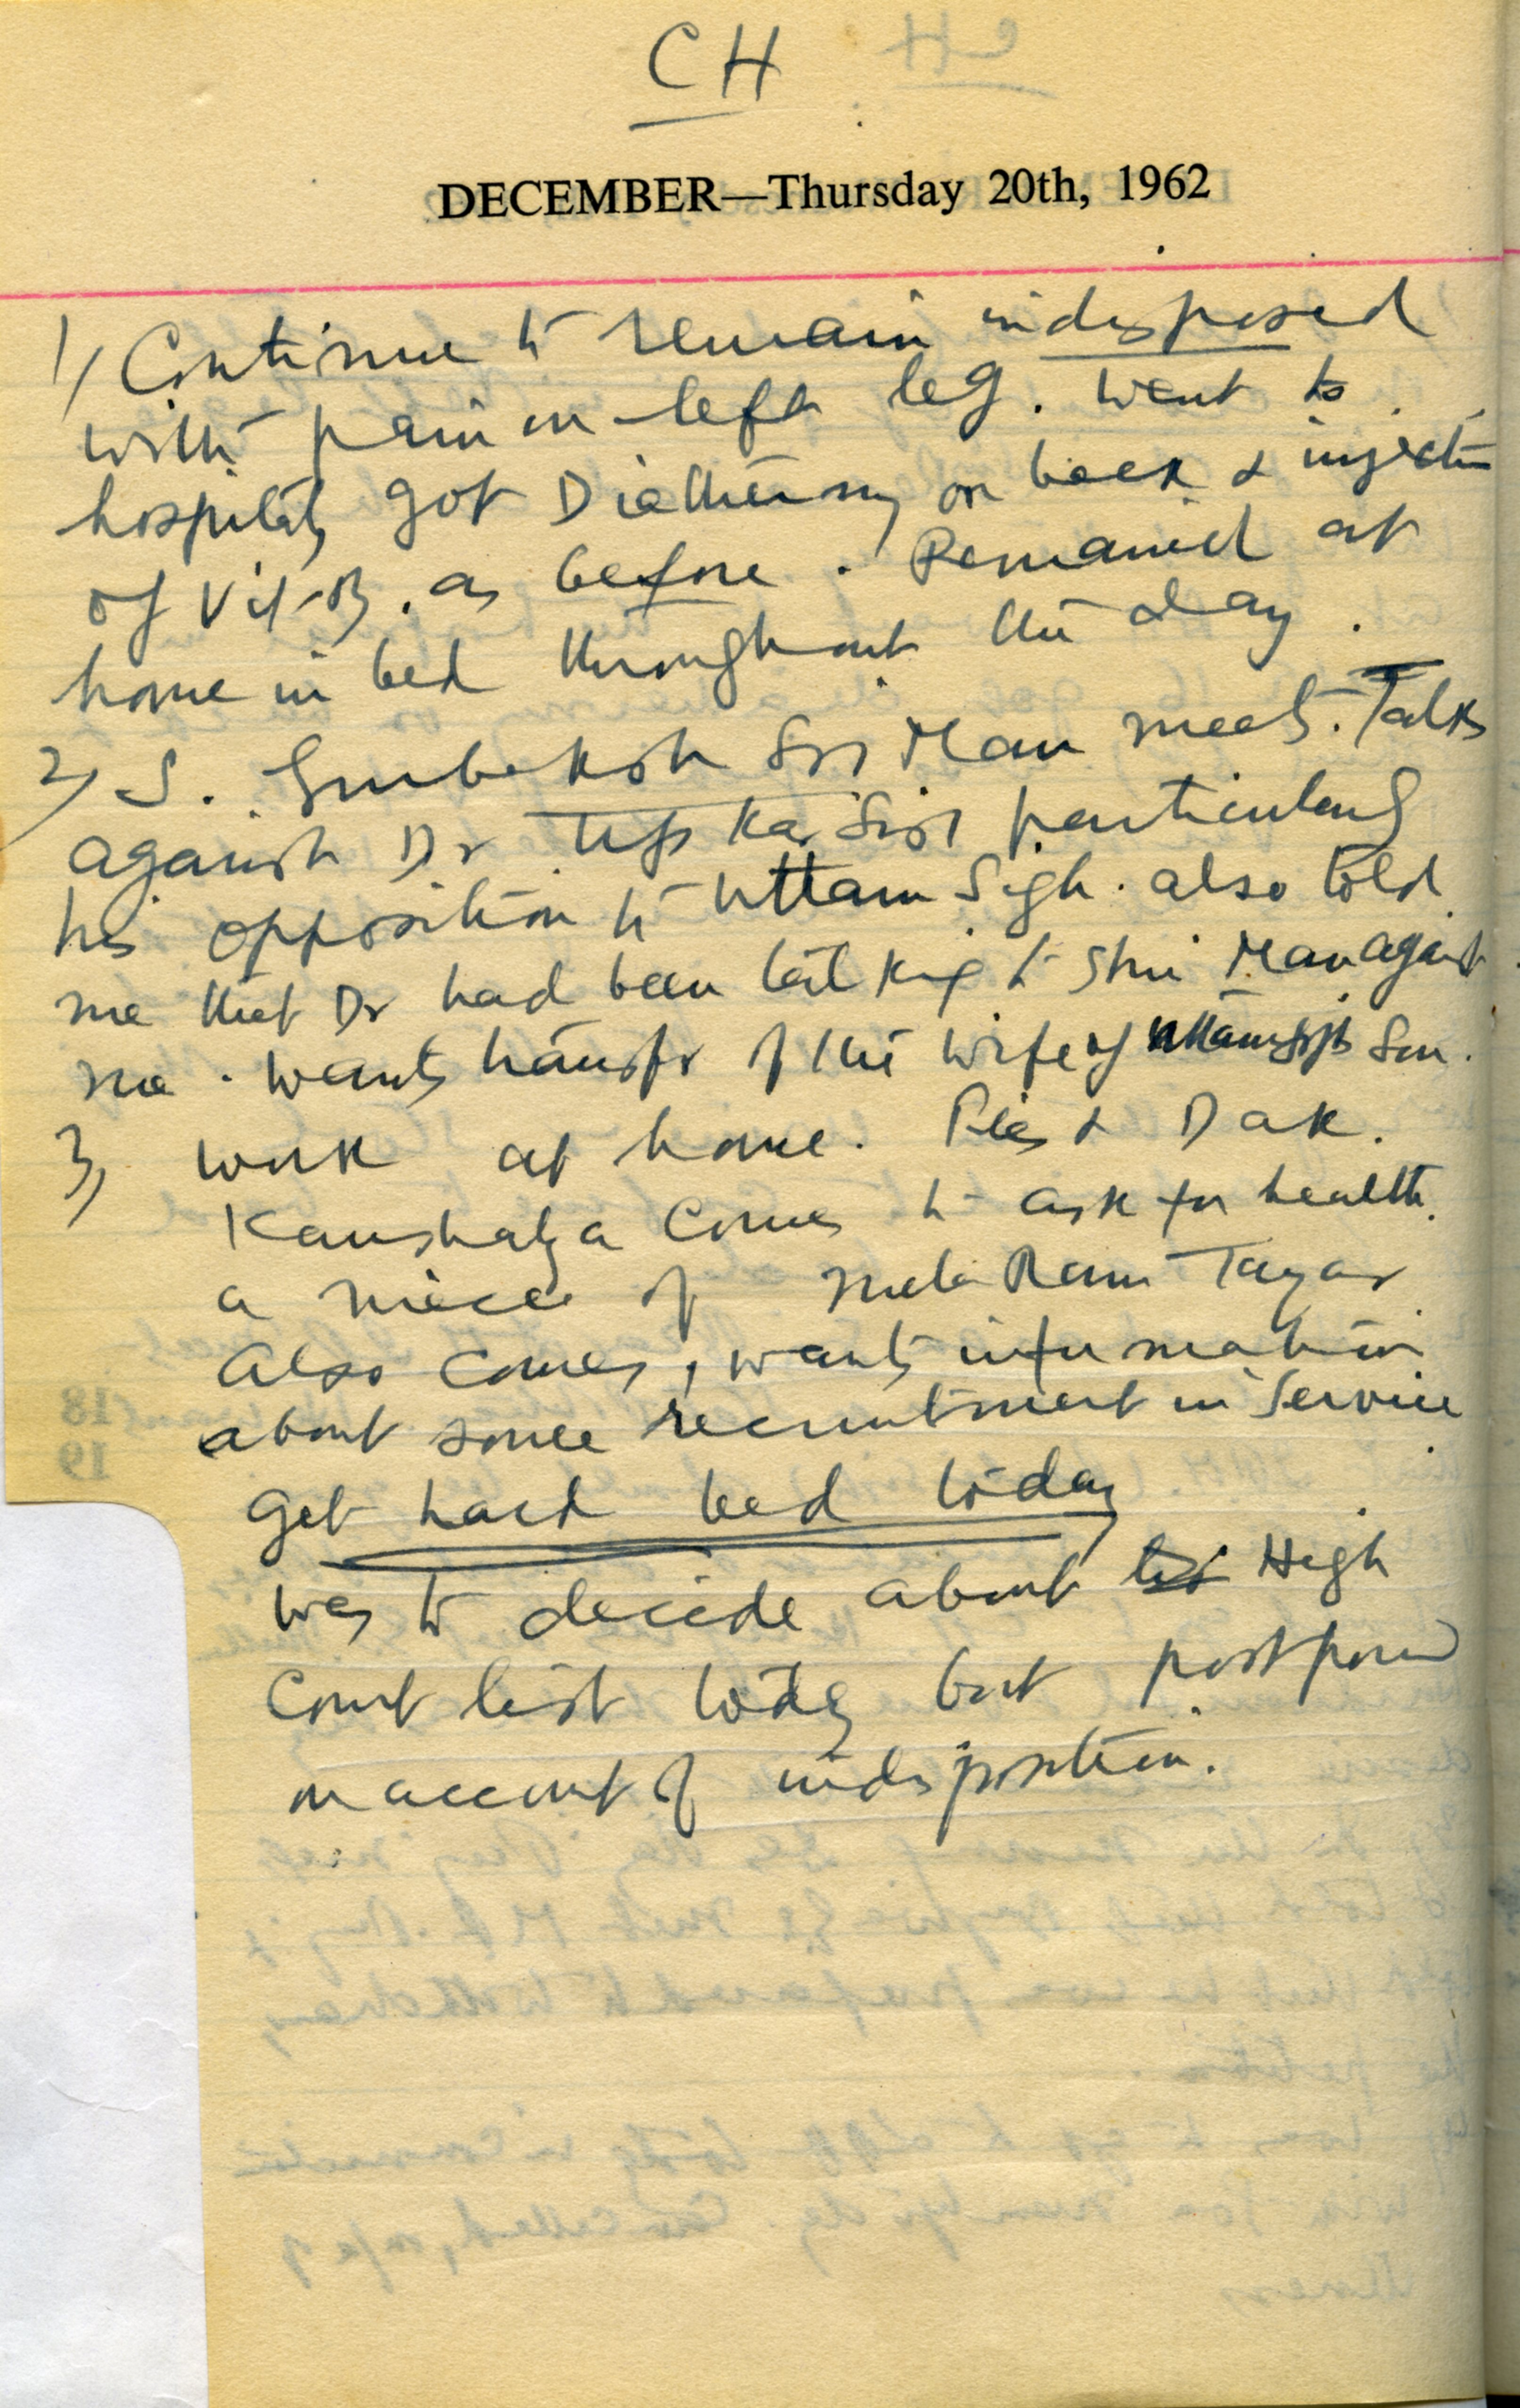 CH
DECEMBER—Thursday 20th, 1962
1/ Continue to remain indisposed
with pain in left leg. Went to
hospital, got Diathermy on back & injection
of Vit-B. as before. Remained at
home in bed throughout the day.
2/ S. Gurbaksh Man meets. Talks
against Dr particularly
his opposition to Uttam Sigh. also told
me that Dr had been talking to Shri Man against
me. wants transfr of the wife of Son.
3/ Work at home. Files & Dak.
Kaushalya comes to ask for health.
a niece of Mela Ram Tayar
also comes, wants information
about some recruitment in Service
Get hard bed today
was to decide about High
Court list today but postponed
on account of indisposition.
18
19